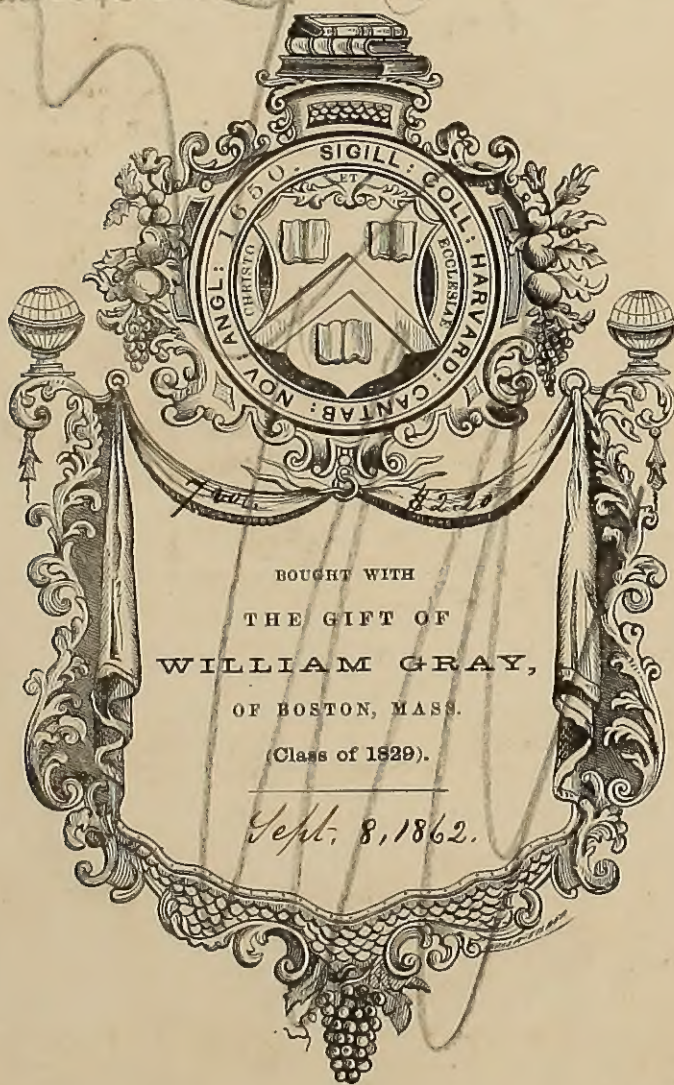 SIGILL: COLL: HARVARD: CANTAB: NOV: ANGL: 1650.
CHRISTO ET ECCLESIAE
$2.20
BOUGHT WITH
THE GIFT OF
WILLIAM GRAY,
OF BOSTON, MASS.
(Class of 1829).
Sept. 8, 1862.